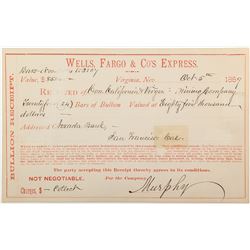 WELLS, FARGO & CO'S EXPRESS.
Value, $
Virginia, Nev. Oct 5th 186
Con. California & Virga. Mining Company
(24) Bars of Bullion Valued at Eighty five thousand
dollars
Address Nevada Bank
San Francisco Cal
The party accepting this Receipt thereby agrees to its conditions.
NOT NEGOTIABLE.
For the Company,
CHARGES, $ Collect
Murphy
BULLION RECEIPT.